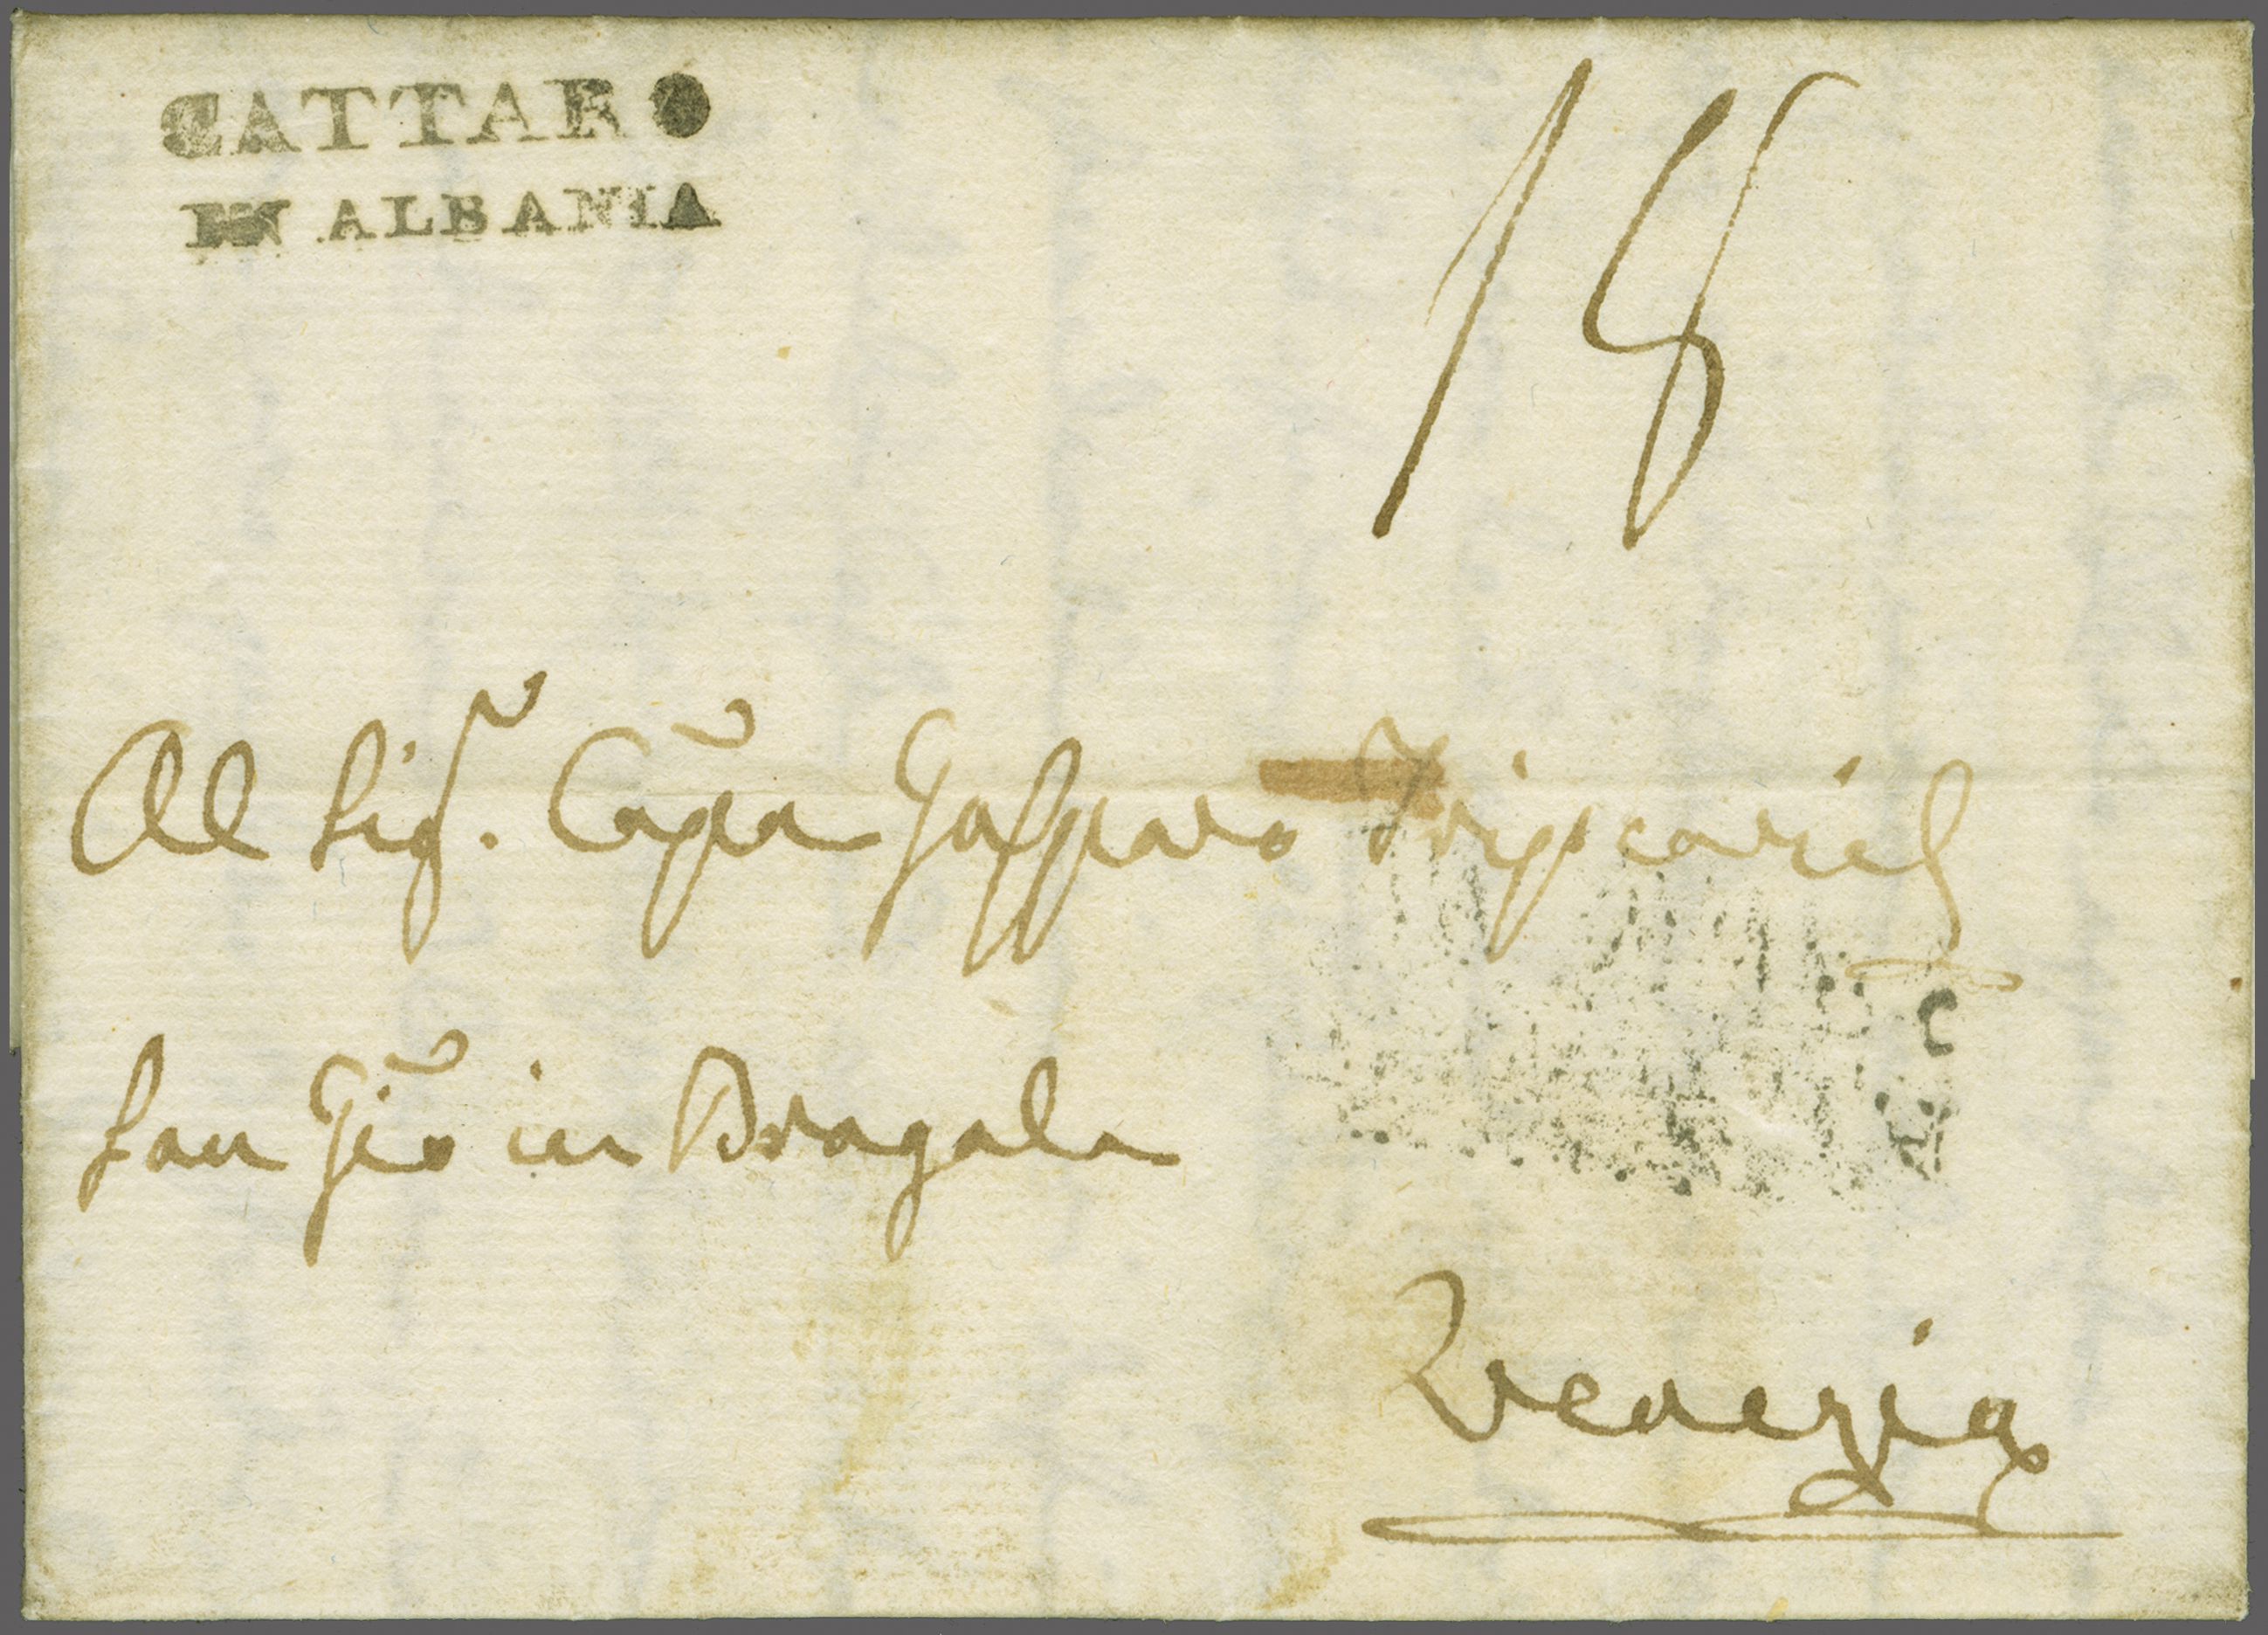 CATTARO
IN ALBANIA
18
Al Sig.r Capn Gasparo Tripcovich
San Gio in Bragala
Venezia